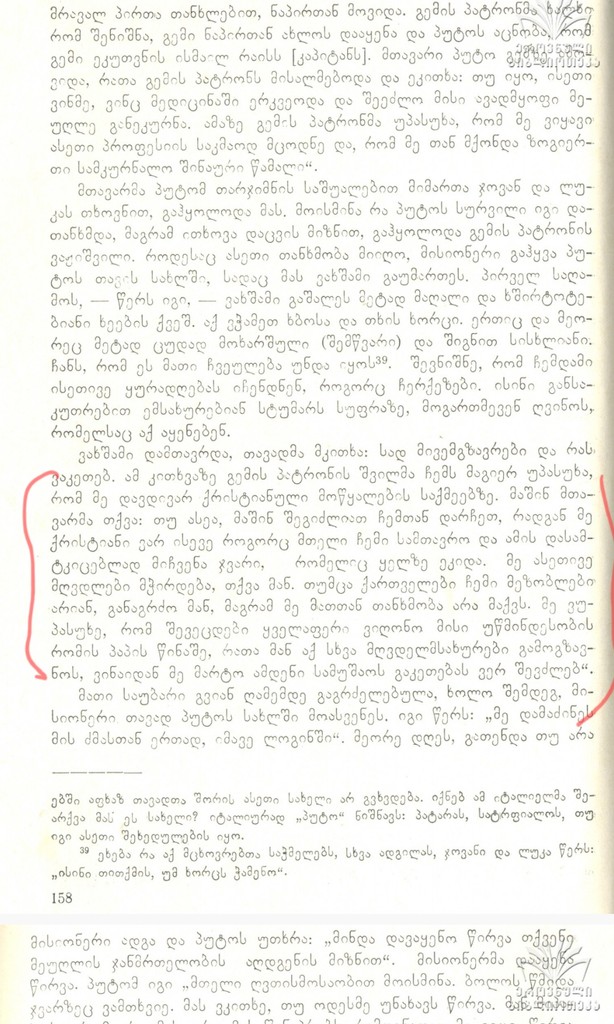 მრავალ პირთა თანხლებით, ნაპირთან მოვიდა. გემის პატრონმა
რომ შენიშნა, გემი ნაპირთან ახლოს დააყენა და პუტოს აცნობა, რომ
გემი ეკუთვნის ისმაილ რაისს [კაპიტანს]. მთავარი პუტო გემზე
ვიდა, რათა გემის პატრონს მისალმებოდა და ეკითხა: თუ იყო, ისეთი
ვინმე, ვინც მედიცინაში ერკვეოდა და შეეძლო მისი ავადმყოფი მე-
უღლე განეკურნა. ამაზე გემის პატრონმა უპასუხა, რომ მე ვიყავი
ასეთი პროფესიის საკმაოდ მცოდნე და, რომ მე თან მქონდა ზოგიერ-
თი სამკურნალო შინაური წამალი“.
მთავარმა პუტომ თარჯიმნის საშუალებით მიმართა ჯოვან და ლუ-
კას თხოვნით, გაჰყოლოდა მას. მოისმინა რა პუტოს სურვილი იგი და-
თანხმდა, მაგრამ ითხოვა დაცვის მიზნით, გაჰყოლოდა გემის პატრონის
ვაჟიშვილი. როდესაც ასეთი თანხმობა მიიღო, მისიონერი გაჰყვა პუ-
ტოს თავის სახლში, სადაც მას ვახშამი გაუმართეს. პირველ საღა-
მოს, — წერს იგი, — ვახშამი გაშალეს მეტად მაღალი და ხშირტოტე-
ბიანი ხეების ქვეშ. აქ ვჭამეთ ხბოსა და თხის ხორცი. ერთიც და მეო-
რეც მეტად ცუდად მოხარშული (შემწვარი) და შიგნით სისხლიანი.
ჩანს, რომ ეს მათი ჩვეულება უნდა იყოს³⁹. შევნიშნე, რომ ჩემდამი
ისეთივე ყურადღებას იჩენდნენ, როგორც ჩერქეზები. ისინი განსა-
კუთრებით ემსახურებიან სტუმარს სუფრაზე, მოგართმევენ ღვინოს,
რომელსაც აქ აყენებენ.
ვახშამი დამთავრდა, თავადმა მკითხა: სად მივემგზავრები და რას
ვაკეთებ. ამ კითხვაზე გემის პატრონის შვილმა ჩემს მაგიერ უპასუხა,
რომ მე დავდივარ ქრისტიანული მოწყალების საქმეებზე. მაშინ მთა-
ვარმა თქვა: თუ ასეა, მაშინ შეგიძლიათ ჩემთან დარჩეთ, რადგან მე
ქრისტიანი ვარ ისევე როგორც მთელი ჩემი სამთავრო და ამის დასამ-
ტკიცებლად მიჩვენა ჯვარი, რომელიც ყელზე ეკიდა. მე ასეთივე
მღვდლები მჭირდება, თქვა მან. თუმცა ქართველები ჩემი მეზობლები
არიან, განაგრძო მან, მაგრამ მე მათთან თანხმობა არა მაქვს. მე ვუ-
პასუხე, რომ შევეცდები ყველაფერი ვიღონო მისი უწმინდესობის
რომის პაპის წინაშე, რათა მან აქ სხვა მღვდელმსახურები გამოგზავ-
ნოს, ვინაიდან მე მარტო ამდენი სამუშაოს გაკეთებას ვერ შევძლებ“.
მათი საუბარი გვიან ღამემდე გაგრძელებულა, ხოლო შემდეგ, მი-
სიონერი თავად პუტოს სახლში მოასვენეს. იგი წერს: „მე დამაძინეს
მის ძმასთან ერთად, იმავე ლოგინში“. მეორე დღეს, გათენდა თუ არა
ებში აფხაზ თავადთა შორის ასეთი სახელი არ გვხვდება. იქნებ ამ იტალიელმა შე-
არქვა მას ეს სახელი? იტალიურად „პუტო“ ნიშნავს: პატარას, სატრფიალოს, თუ
იგი ასეთი შეხედულების იყო.
³⁹ ეხება რა აქ მცხოვრებთა საჭმელებს, სხვა ადგილას, ჯოვანი და ლუკა წერს:
„ისინი თითქმის, უმ ხორცს ჭამენო“.
158
მისიონერი ადგა და პუტოს უთხრა: „მინდა დავაყენო წირვა თქვენი
მეუღლის ჯანმრთელობის აღდგენის მიზნით“. მისიონერმა დააყენა
წირვა. პუტომ იგი „მთელი ღვთისმოსაობით მოისმინა. ბოლოს წმიდა
ჯვარზეც ვამთხვიე. მას ვკითხე, თუ ოდესმე უნახავს წირვა.